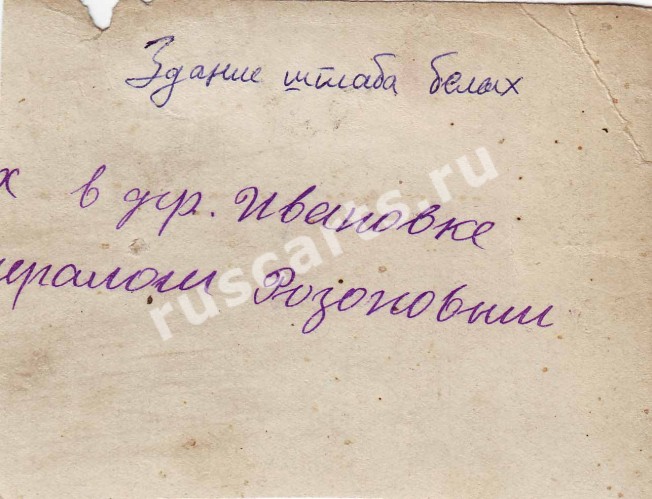 Здание штаба белых
х в дер. Ивановке
нералом Розоновым
ruscarts.ru